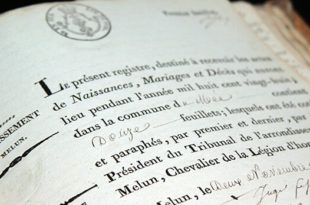 Premier feuillet.
Le présent registre, destiné à recevoir les actes
de Naissances, Mariages et Décès qui auront
lieu pendant l'année mil huit cent vingt-huit
dans la commune d
contient
Douze feuillets; lesquels ont été cotés
et paraphés, par premier et dernier, par
Président du Tribunal de l'arrondissement
Melun, Chevalier de la Légion d'honn
Melun, le Deux Novembre
Juge
ISSEMENT
MELUN.